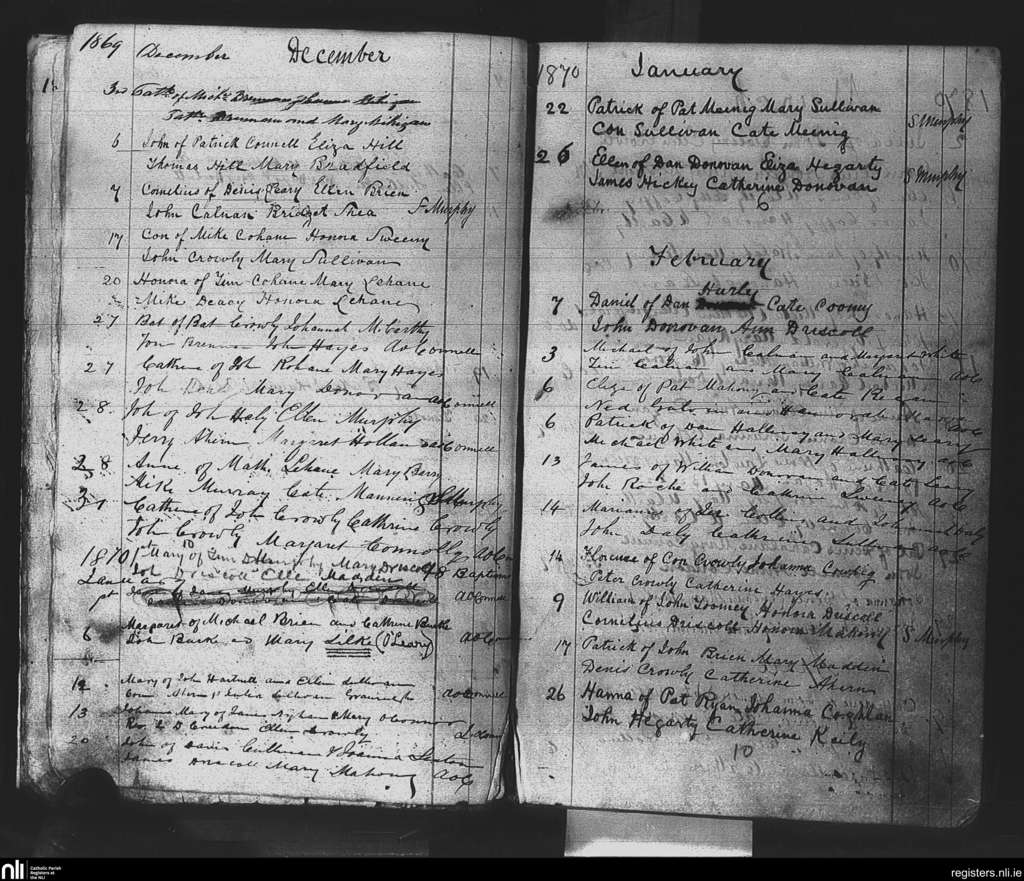 1869 December December
3rd Cath. of Mich. Brennan Mihigan
Cath. Brennan and Mary Mihigan
6 John of Patrick Connell Eliza Hill
Thomas Hill Mary Bradfield
7 Cornelius of Denis Leary Ellen Brien
John Calnan Bridget Shea S Murphy
17 Con of Mike Cohane Honora Sweeny
John Crowly Mary Sullivan
20 Honora of Tim Cohane Mary Lehane
Mike Deacy Honora Lehane
27 Bat of Bat Crowly Johannah McCarthy
Brennan John Hayes AoConnell
27 Cathrine of Joh Kohane Mary Hayes
Joh Mary Donovan AoConnell
28 Joh of Joh Haly Ellen Murphy
Jerry Ahern Margret Hollan AoConnell
28 Anne of Math. Lehane Mary Barry
Mike Murray Cate Manning S Murphy
31 Cathrine of Joh Crowly Cathrine Crowly
Joh Crowly Margaret Connolly AoCon
10
1870 1st Mary of Tim Murphy Mary Driscoll 98 Baptism
Joh Driscoll Ellen Madden
AoConnell
6 Margaret of Michael Brien and Cathrine Burke
Joh Burke and Mary Silke (O'Leary) AoConnell
12 Mary of John Hartnett and Ellen Sullivan
AoConnell
13 Mary of James and Mary O Connor
Rev D Ellen Crowly
20 John of Denis Cullinan & Joanna
James Driscoll Mary Mahony AoC
1870 January
22 Patrick of Pat Meinig Mary Sullivan
Con Sullivan Cate Meenig S Murphy
26 Ellen of Dan Donovan Eliza Hegarty
James Hickey Catherine Donovan S Murphy
6
February
Hurly
7 Daniel of Dan Cate Coomy
John Donovan Ann Driscoll
3 Michael of John Calnan and Margaret White
Tim Calnan and Mary Calnan AoC
6 Eliza of Pat Mahony and Cate Regan
Ned and Hanorah AoC
6 Patrick of Dan Hallissey and Mary Leary
Michael White and Mary Hallissey AoC
13 James of William Donovan and Cate Leary
John Roche and Cathrine Sweeny AoC
14 Marianne of Jer Collins and Johannah Daly
John Daly Cathrine Sullivan AoC
14 Florence of Con Crowly Johanna Cowhig
Peter Crowly Catherine Hayes
9 William of John Toomey Honora Driscoll
Cornelius Driscoll Honora Mahony S Murphy
17 Patrick of John Brien Mary Maddin
Denis Crowly Catherine Ahern
26 Hanna of Pat Ryan Johanna Coughlan
John Hegarty Catherine Keily
10
nli Catholic Parish
Registers at
the NLI
registers.nli.ie